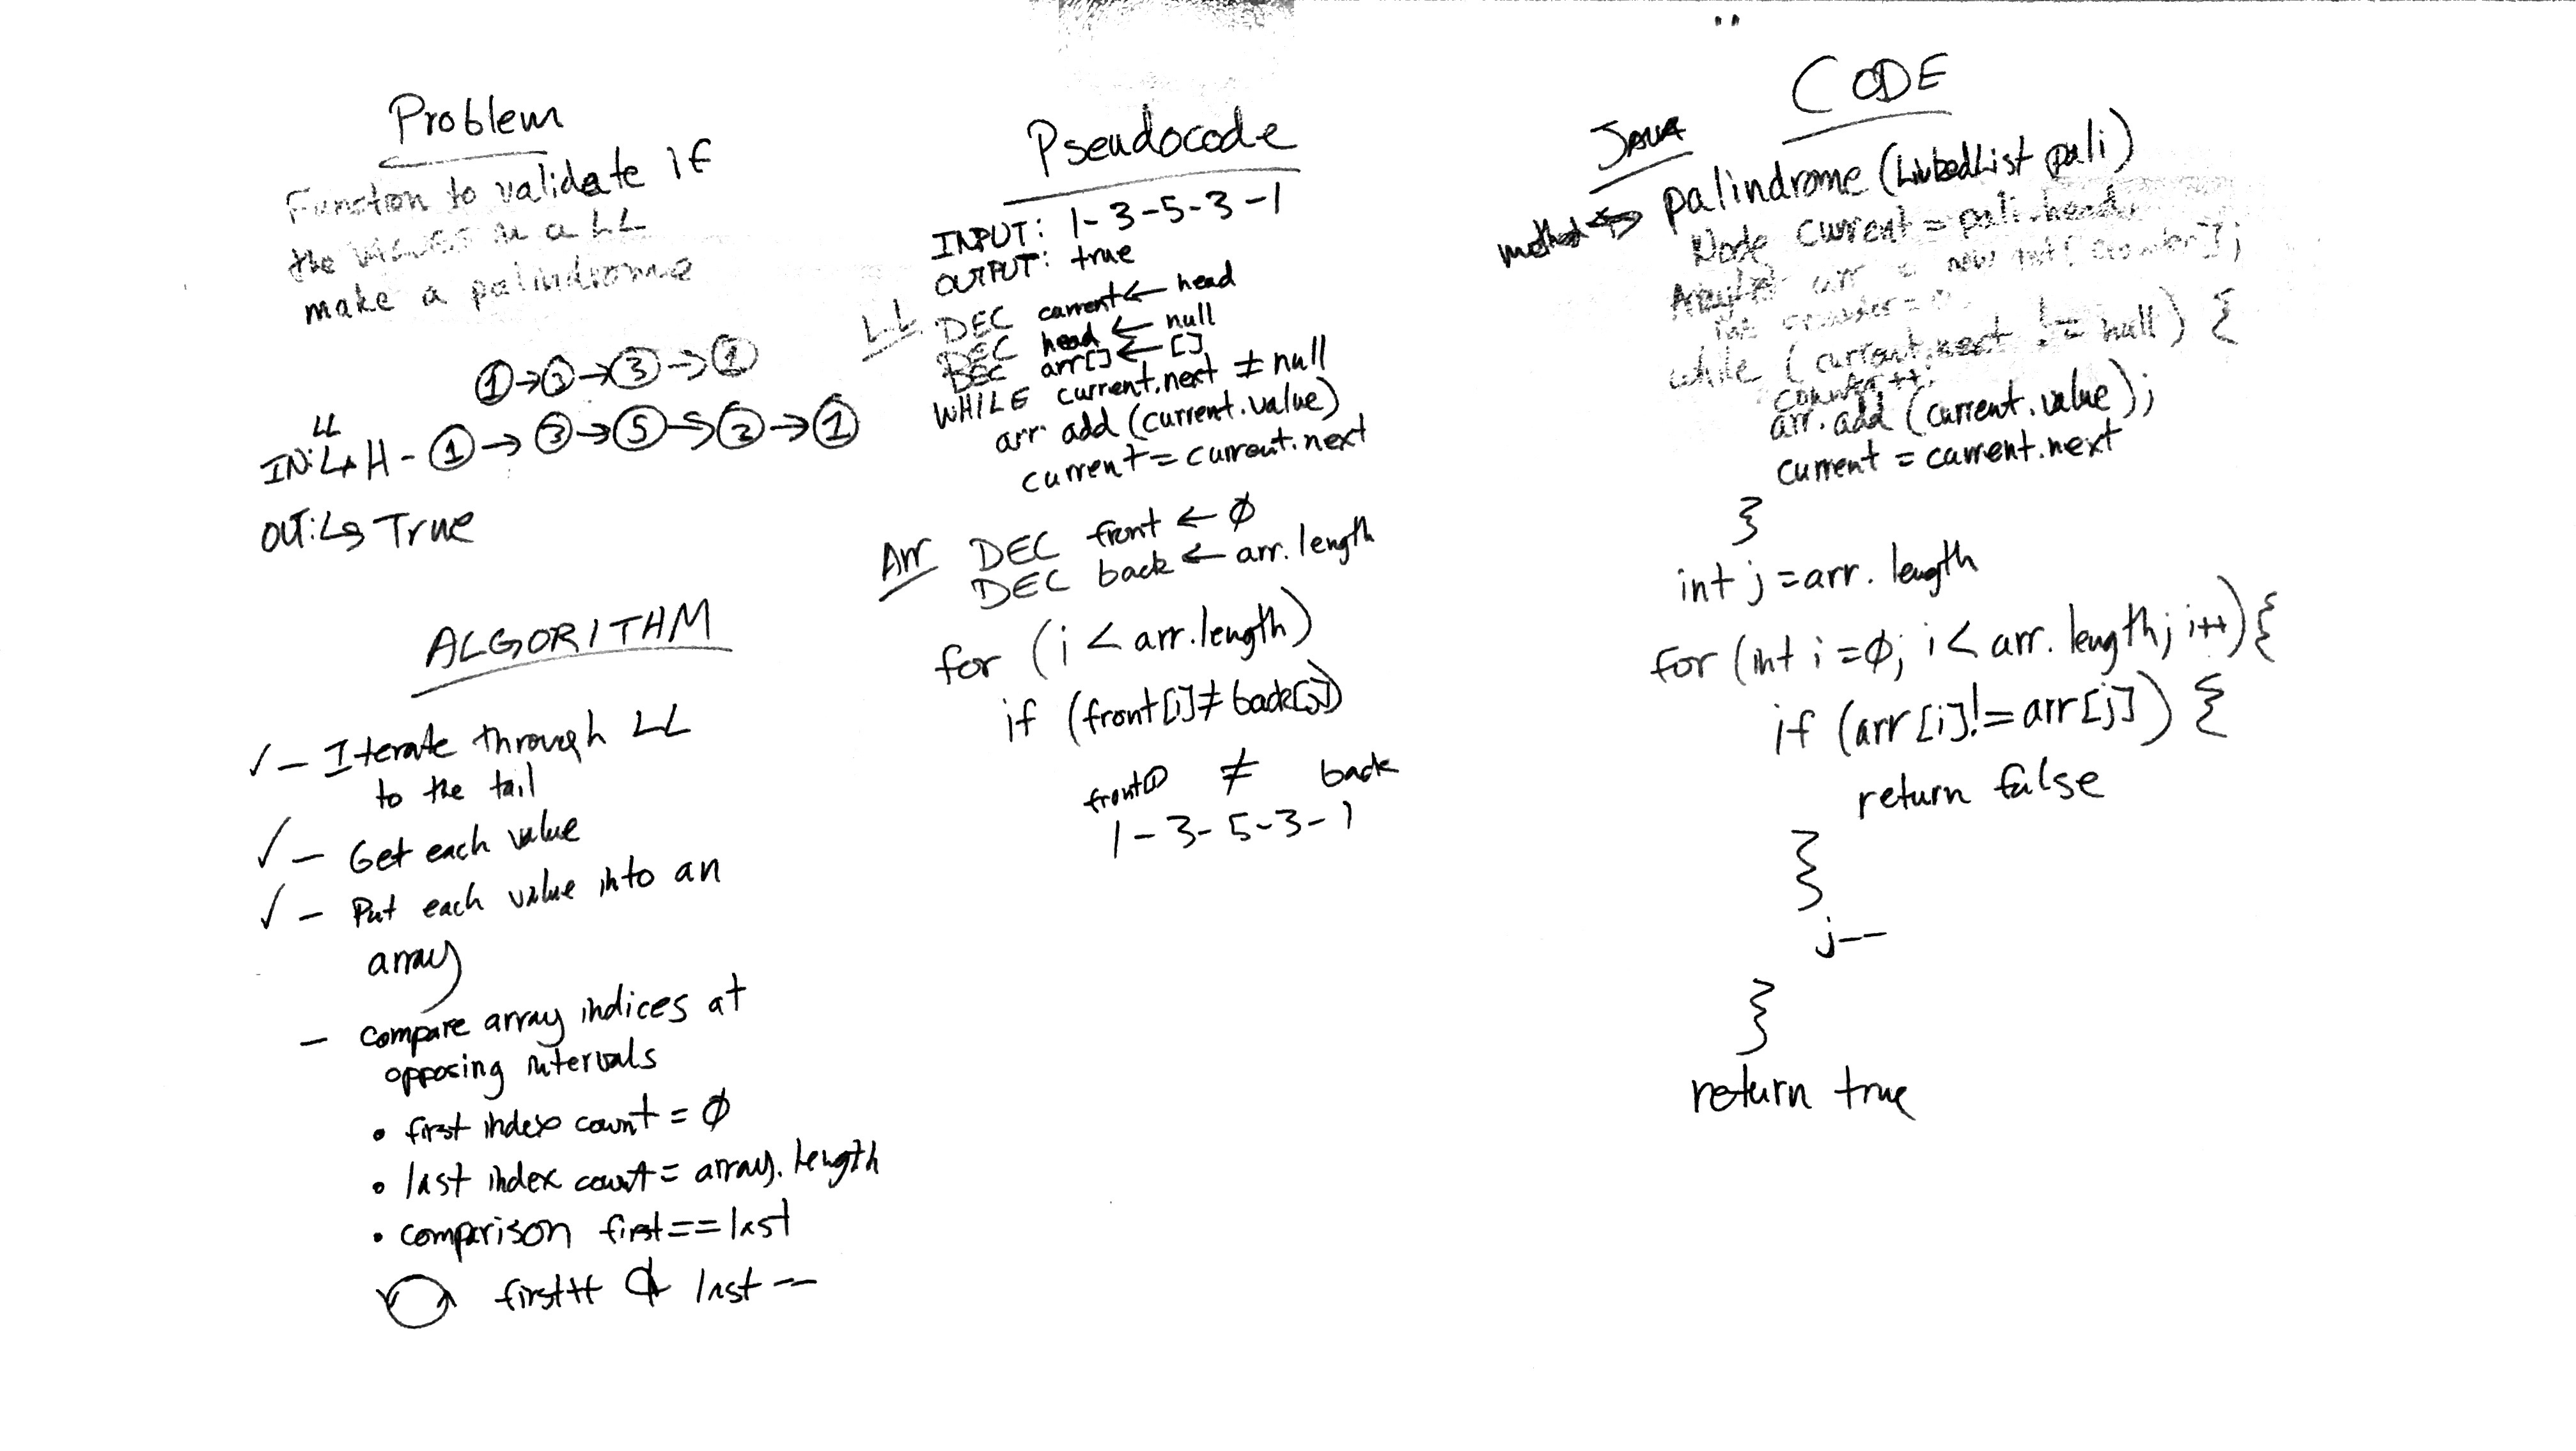 Problem
Function to validate if
the values in a LL
make a palindrome
①→③→③→①
LL
IN:↳ H - ①→③→⑤→③→①
OUT:↳ True
ALGORITHM
✓ - Iterate through LL
to the tail
✓ - Get each value
✓ - Put each value into an
array
- compare array indices at
opposing intervals
• first index count = ∅
• last index count = array.length
• comparison first==last
first++ & last--
Pseudocode
INPUT: 1-3-5-3-1
OUTPUT: true
LL DEC current ← head
DEC head ← null
DEC arr[] ← []
WHILE current.next ≠ null
arr add (current.value)
current = current.next
Arr DEC front ← ∅
DEC back ← arr.length
for (i < arr.length)
if (front[i] ≠ back[j])
front ≠ back
1-3-5-3-1
CODE
JAVA
method → palindrome (LinkedList pali)
Node current = pali.head
arr = new int[counter];
int counter = 0
while (current.next != null) {
counter++;
arr.add (current.value);
current = current.next
}
int j = arr.length
for (int i = ∅; i < arr.length; i++) {
if (arr[i] != arr[j]) {
return false
}
j--
}
return true